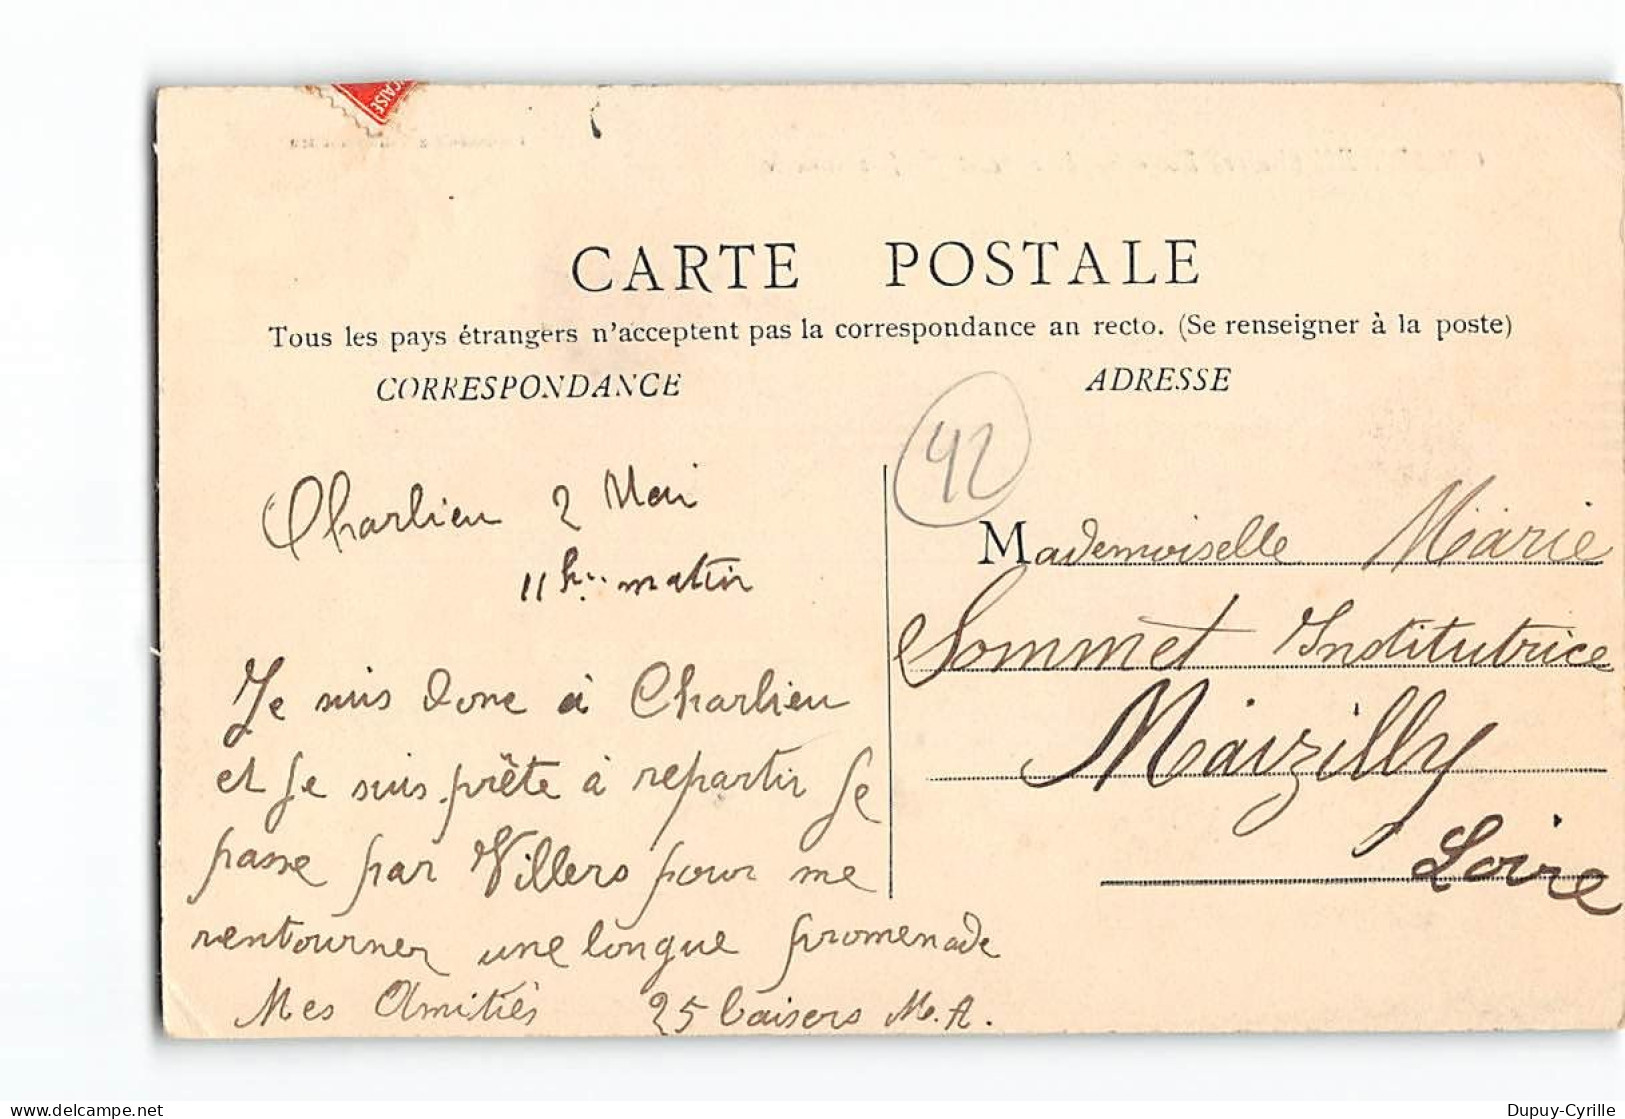 ÇAISE
CARTE POSTALE
Tous les pays étrangers n'acceptent pas la correspondance an recto. (Se renseigner à la poste)
CORRESPONDANCE
ADRESSE
42
Charlieu 2 Mai
11h. matin
Je suis donc à Charlieu
et je suis prête à repartir je
passe par Villers pour me
rentourner une longue promenade
Mes Amitiés 25 baisers M.A.
Mademoiselle Marie
Sommet Institutrice
Maizilly
Loire
delcampe.net
Dupuy-Cyrille